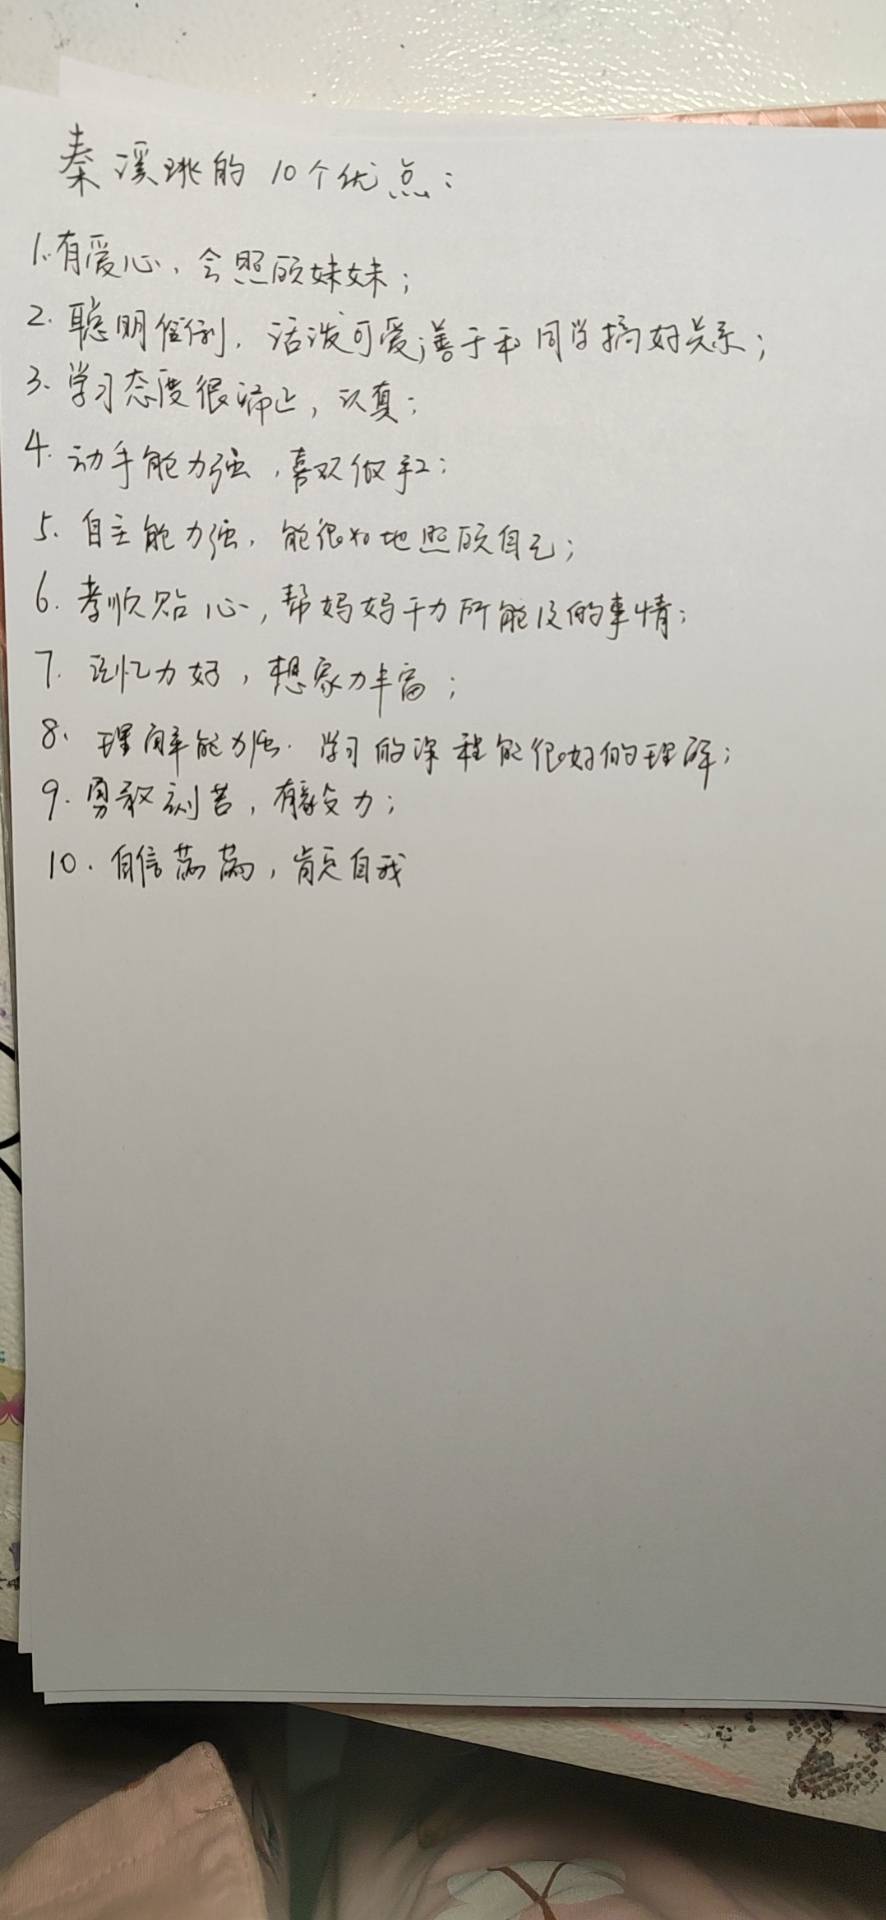 秦溪珧的10个优点：
1.有爱心，会照顾妹妹；
2.聪明伶俐，活泼可爱，善于和同学搞好关系；
3.学习态度很端正，认真；
4.动手能力强，喜欢做手工；
5.自主能力强，能很好地照顾自己；
6.孝顺贴心，帮妈妈干力所能及的事情；
7.记忆力好，想象力丰富；
8.理解能力强.学习的课程能很好的理解；
9.勇敢刻苦，有毅力；
10.自信满满，肯定自我